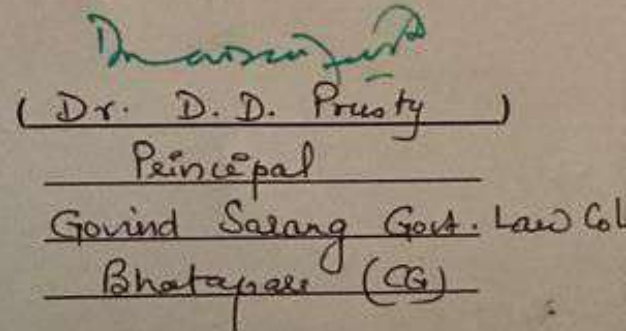 ( Dr. D. D. Prusty )
Principal
Govind Sarang Govt. Law Col
Bhatapara (CG)